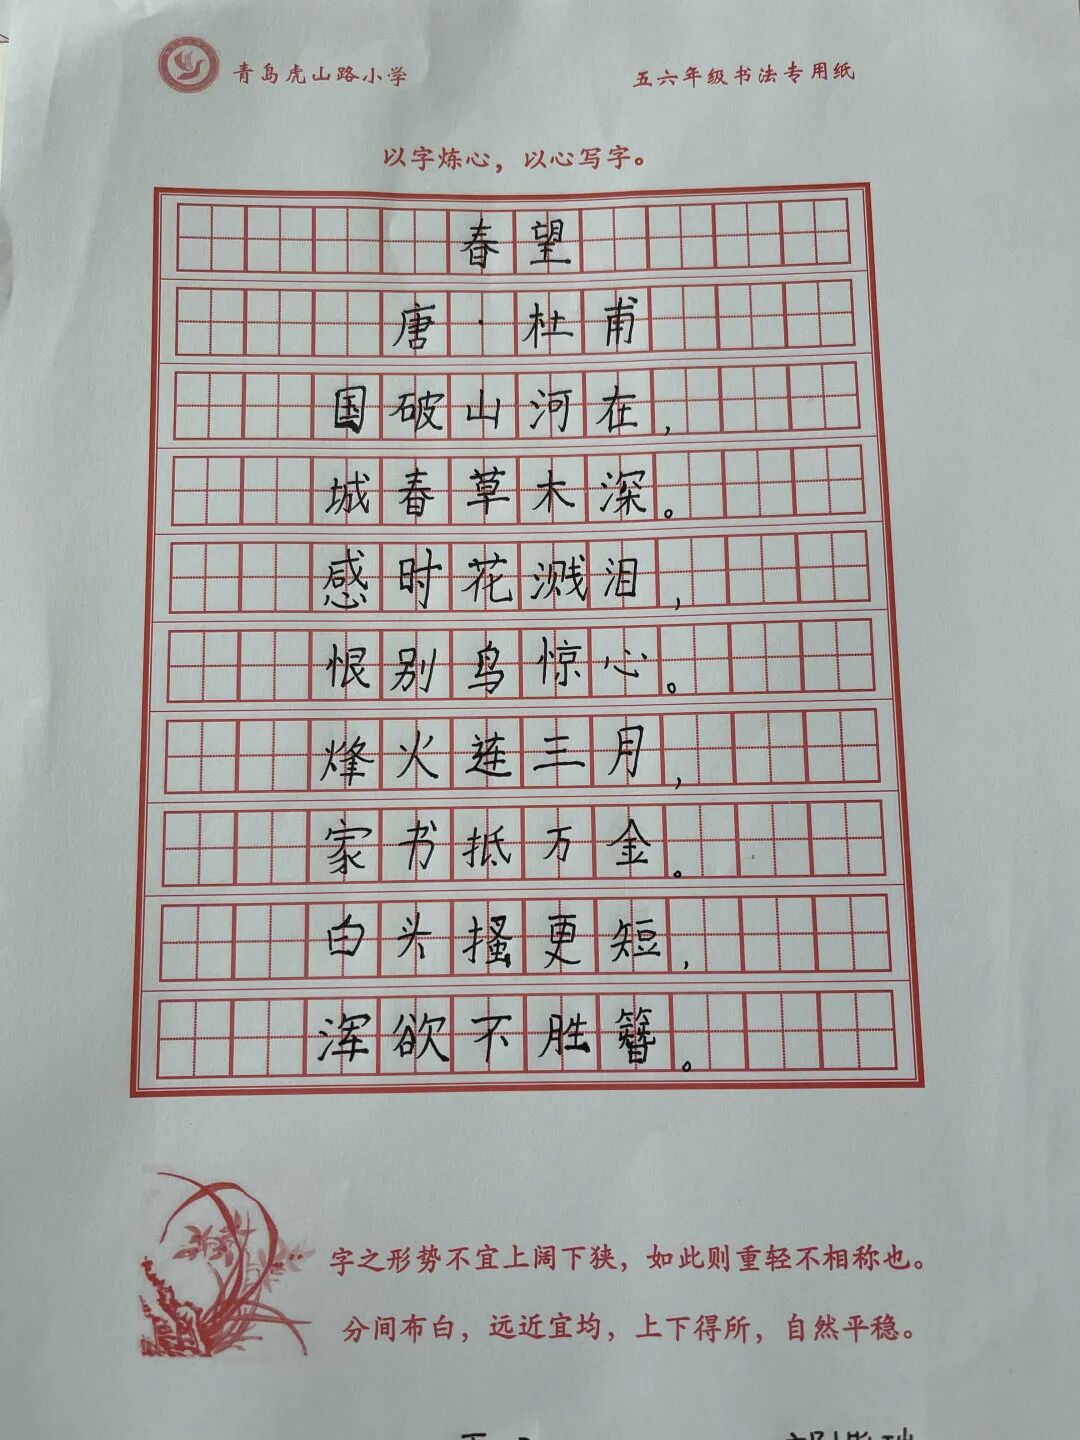 青岛虎山路小学 五六年级书法专用纸
以字炼心，以心写字。
春望
唐·杜甫
国破山河在，
城春草木深。
感时花溅泪，
恨别鸟惊心。
烽火连三月，
家书抵万金。
白头搔更短，
浑欲不胜簪。
字之形势不宜上阔下狭，如此则重轻不相称也。
分间布白，远近宜均，上下得所，自然平稳。